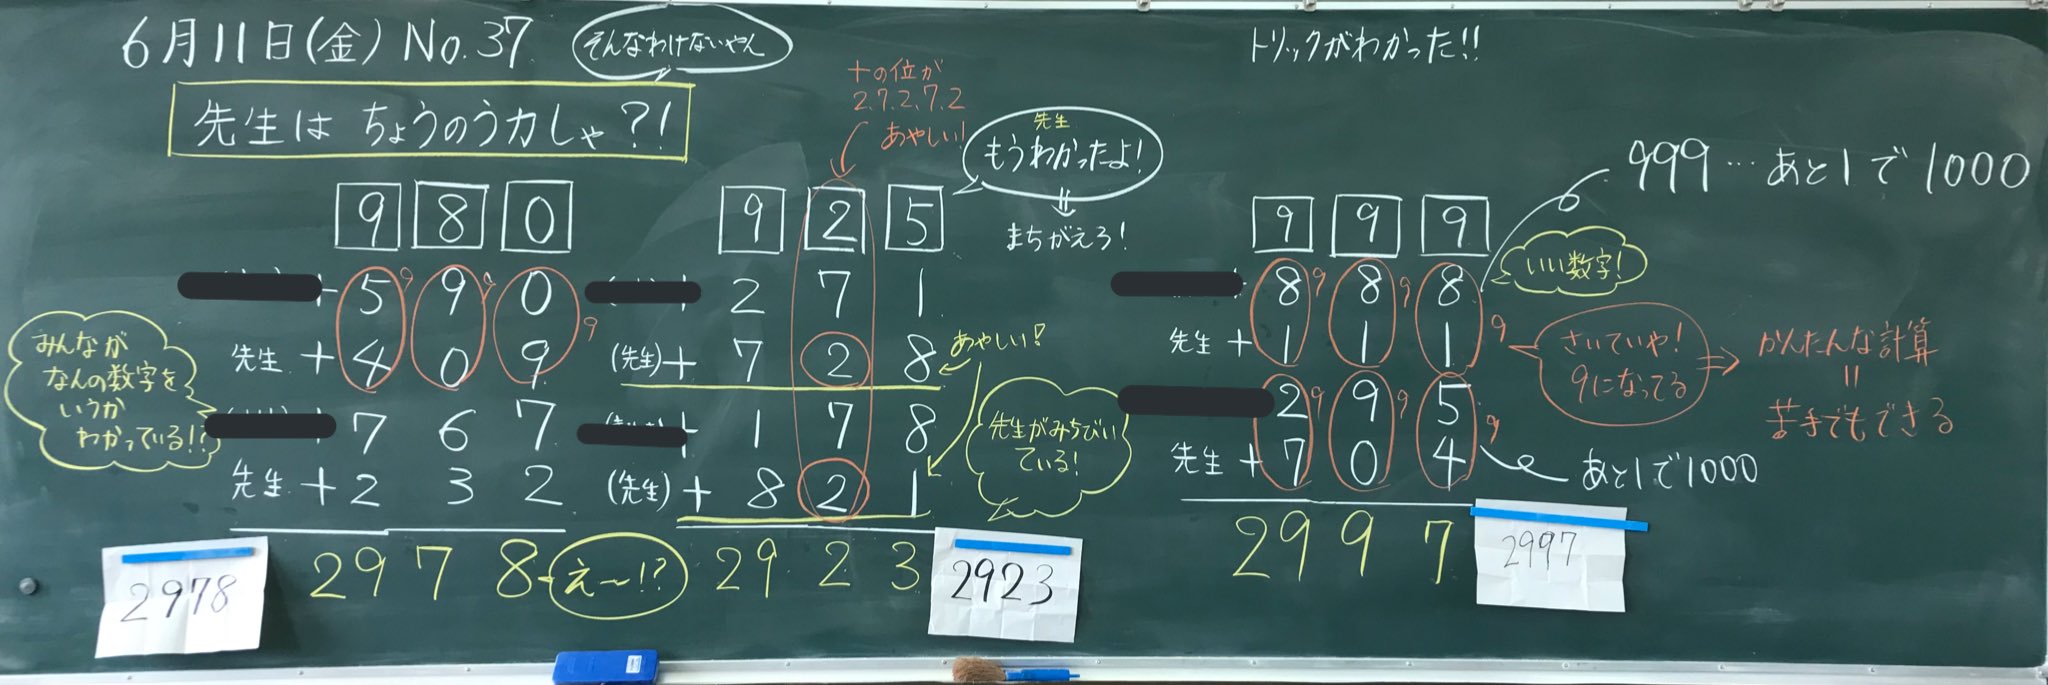 6月11日(金) No.37
そんなわけないやん
先生は ちょうのう力しゃ?!
9 8 0
+ 5 9 0
9 9 9
先生 + 4 0 9
+ 7 6 7
先生 + 2 3 2
2 9 7 8
2978
みんなが
なんの数字を
いうか
わかっている!?
え〜!?
十の位が
2.7.2.7.2
あやしい!
9 2 5
+ 2 7 1
(先生) + 7 2 8
+ 1 7 8
(先生) + 8 2 1
2 9 2 3
2923
先生
もうわかったよ!
まちがえろ!
あやしい!
先生がみちびい
ている!
トリックがわかった!!
9 9 9
+ 8 8 8
9 9 9
先生 + 1 1 1
2 9 5
9 9 9
先生 + 7 0 4
2 9 9 7
2997
999…あと1で1000
いい数字!
さいていや!
9になってる
⇒ かんたんな計算
=
苦手でもできる
あと1で1000